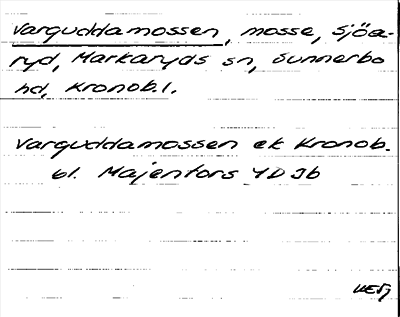 Varguddamossen, mosse, Sjöa-
ryd, Markaryds sn, Sunnerbo
hd, Kronob.l.
Varguddamossen ek Kronob.
bl. Majenfors 4D Jb